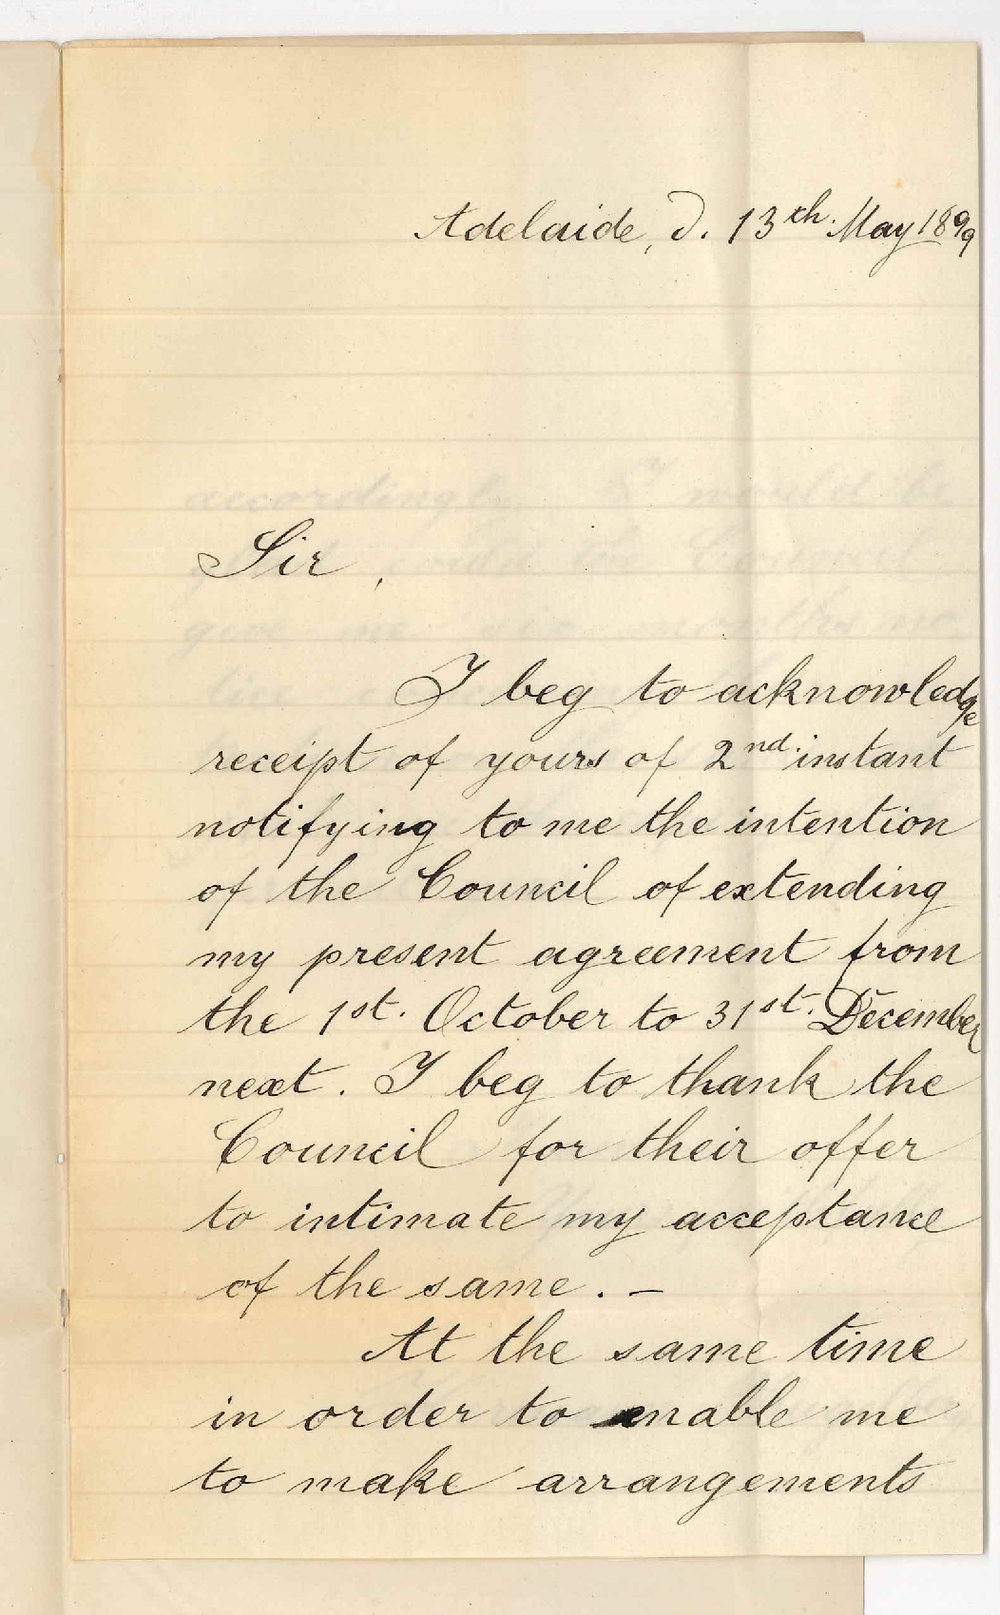 Adelaide, d. 13th. May 1899
Sir,
I beg to acknowledge
receipt of yours of 2nd. instant
notifying to me the intention
of the Council of extending
my present agreement from
the 1st. October to 31st. December
next. I beg to thank the
Council for their offer
to intimate my acceptance
of the same. –
At the same time
in order to enable me
to make arrangements